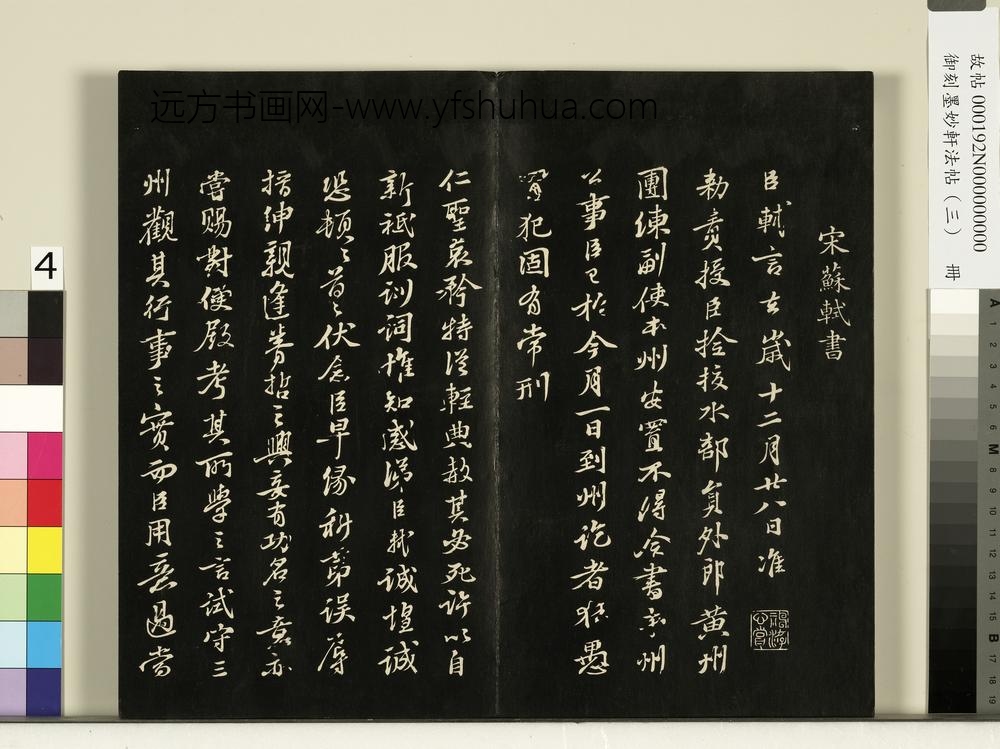 远方书画网-www.yfshuhua.com
故帖 000192N000000000
御刻墨妙軒法帖（三） 冊
宋蘇軾書
臣軾言去歲十二月廿八日准
勅責授臣撿挍水部員外郎黃州
團練副使本州安置不得僉書本州
公事臣已於今月一日到州訖者狂愚
冒犯固有常刑
仁聖哀矜特從輕典赦其必死許以自
新祗服訓詞惟知感涕臣軾誠惶誠
恐頓〻首〻伏念臣早緣科第誤辱
搢紳親逢睿哲之興妄有功名之意亦
嘗賜對便殿考其所學之言試守三
州觀其行事之實而臣用意過當
4
A 1 2 3 4 5 6 M 8 9 10 11 12 13 14 15 B 17 18 19